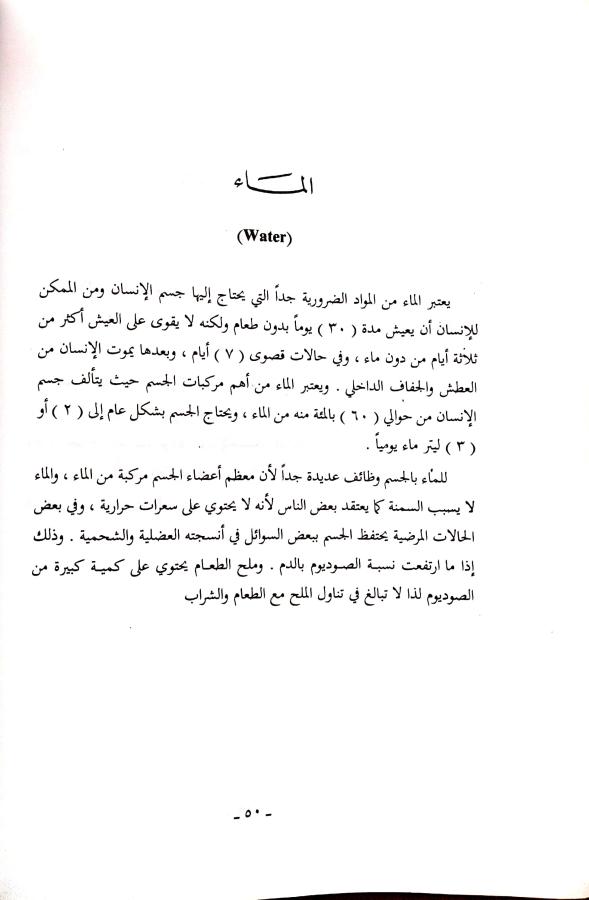 المـاء
(Water)
يعتبر الماء من المواد الضرورية جداً التي يحتاج إليها جسم الإنسان ومن الممكن
للإنسان أن يعيش مدة ( ٣٠ ) يوماً بدون طعام ولكنه لا يقوى على العيش أكثر من
ثلاثة أيام من دون ماء ، وفي حالات قصوى ( ٧ ) أيام ، وبعدها يموت الإنسان من
العطش والجفاف الداخلي . ويعتبر الماء من أهم مركبات الجسم حيث يتألف جسم
الإنسان من حوالي ( ٦٠ ) بالمئة منه من الماء ، ويحتاج الجسم بشكل عام إلى ( ٢ ) أو
( ٣ ) ليتر ماء يومياً .
للماء بالجسم وظائف عديدة جداً لأن معظم أعضاء الجسم مركبة من الماء ، والماء
لا يسبب السمنة كما يعتقد بعض الناس لأنه لا يحتوي على سعرات حرارية ، وفي بعض
الحالات المرضية يحتفظ الجسم ببعض السوائل في أنسجته العضلية والشحمية . وذلك
إذا ما ارتفعت نسبة الصوديوم بالدم . وملح الطعام يحتوي على كمية كبيرة من
الصوديوم لذا لا تبالغ في تناول الملح مع الطعام والشراب
- ٥٠ -